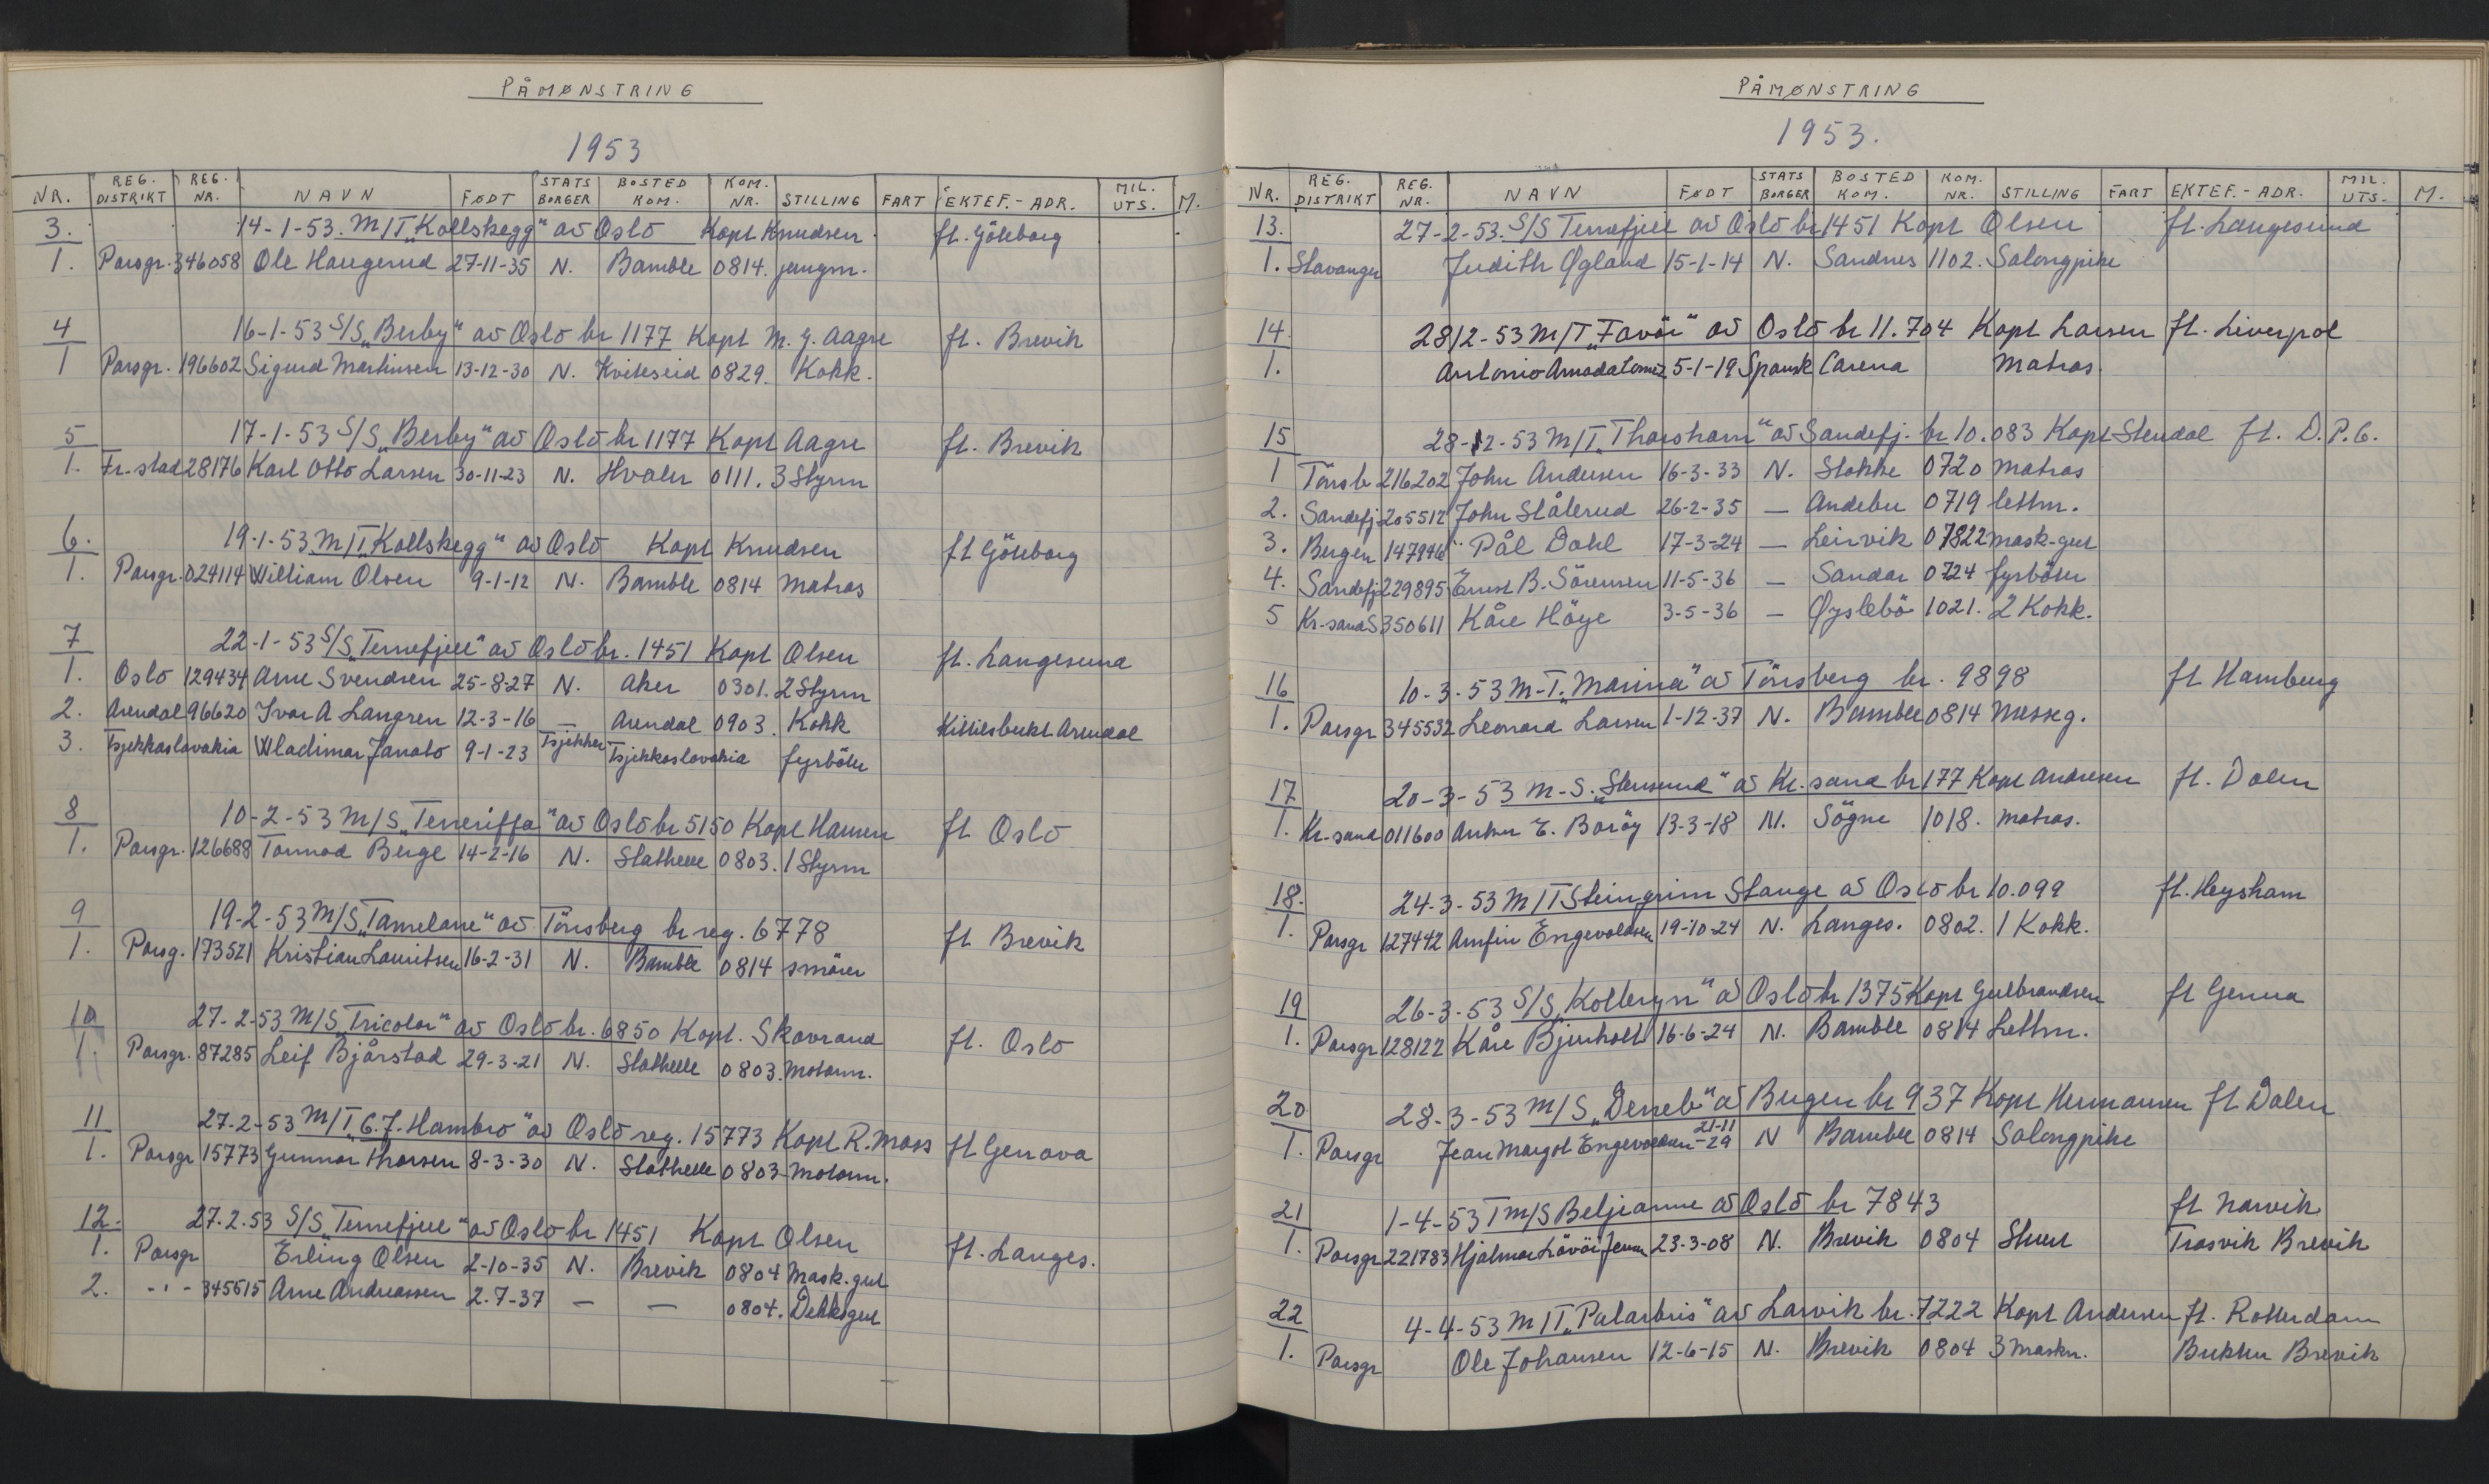 PÅMØNSTRING
1953
NR. REG. DISTRIKT REG. NR. NAVN FØDT STATS BORGER BOSTED KOM. KOM. NR. STILLING FART EKTEF.- ADR. MIL. UTS. M.
3. 14-1-53. M/T „Kollskegg" av Oslo Kapt Knudsen ft. Göteborg
1. Porsgr. 346058 Ole Haugerud 27-11-35 N. Bamble 0814. jungm.
4 16-1-53 S/S „Berby" av Oslo br 1177 Kapt M. G. Aagre ft. Brevik
1 Porsgr. 196602 Sigurd Martinsen 13-12-30 N. Kviteseid 0829. Kokk.
5 17-1-53 S/S „Berby" av Oslo br 1177 Kapt Aagre ft. Brevik
1. Fr.-stad 28176 Karl Otto Larsen 30-11-23 N. Hvaler 0111. 3 Styrm
6. 19-1-53 M/T Kollskegg" av Oslo Kapt Knudsen ft Göteborg
1. Porsgr. 024114 William Olsen 9-1-12 N. Bamble 0814 matros
7 22-1-53 S/S „Ternefjell" av Oslo br. 1451 Kapt Olsen ft. Langesund
1. Oslo 129434 Arne Svendsen 25-8-27 N. Aker 0301. 2 Styrm
2. Arendal 96620 Ivar A Langren 12-3-16 — Arendal 0903. Kokk Kittelsbukt Arendal
3. Tsjekkoslovakia Wladimar Janato 9-1-23 Tsjekker Tsjekkoslovakia fyrböter
8 10-2-53 M/S „Teneriffa" av Oslo br 5150 Kapt Hansen ft Oslo
1. Porsgr. 126688 Tormod Berge 14-2-16 N. Stathelle 0803. 1 Styrm
9 19-2-53 M/S „Tamelane" av Tönsberg br reg. 6778 ft Brevik
1. Porsg. 173521 Kristian Lauritsen 16-2-31 N. Bamble 0814 smörer
10 27-2-53 M/S „Tricolor" av Oslo br. 6850 Kapt. Skavrand ft. Oslo
1. Porsgr. 87285 Leif Bjårstad 29-3-21 N. Stathelle 0803. motorm.
11 27-2-53 M/T „C. J. Hambro" av Oslo reg. 15773 Kapt R. Moss ft Genova
1. Porsgr 15773 Gunnar Thorsen 8-3-30 N. Stathelle 0803 motorm.
12. 27.2.53 S/S „Ternefjell" av Oslo br 1451 Kapt Olsen ft. Langes.
1. Porsgr Erling Olsen 2-10-35 N. Brevik 0804 Mask.gut
2. -"- 345615 Arne Andreassen 2.7-37 — — 0804. Dekksgut
PÅMØNSTRING
1953.
NR. REG. DISTRIKT REG. NR. NAVN FØDT STATS BORGER BOSTED KOM. KOM. NR. STILLING FART EKTEF.- ADR. MIL. UTS. M.
13. 27-2-53. S/S Ternefjell av Oslo br 1451 Kapt Olsen ft. Langesund
1. Stavanger Judith Øgland 15-1-14 N. Sandnes 1102. Salongpike
14. 28/2-53 M/T „Favör" av Oslo br 11.704 Kapt Larsen ft. Liverpol
1. Antonio 5-1-19 Spansk Carena matros.
15 28-12-53 M/T „Thorshavn" av Sandefj. br 10.083 Kapt Stendal ft. D.P.G.
1 Tönsb 216202 John Andersen 16-3-33 N. Stokke 0720 matros
2. Sandefj 205512 John Stålerud 26-2-35 — Andebu 0719 lettm.
3. Bergen 147946 Pål Dahl 17-3-24 — Leirvik 07822 mask-gut
4. Sandefj 229895 Ernst B. Sörensen 11-5-36 — Sandar 0724 fyrböter
5 Kr-sand S 350611 Kåre Höye 3-5-36 — Øyslebö 1021. 2 Kokk.
16 10-3-53 M-T. „Marina" av Tönsberg br. 9898 ft Hamburg
1. Porsgr 345532 Leonard Larsen 1-12-37 N. Bamble 0814 messg.
17 20-3-53 M-S. „Stensund" av Kr.sand br 177 Kapt Andresen ft. Dalen
1. Kr-sand 011600 Anker E. Boröy 13-3-18 N. Sögne 1018. matros.
18. 24-3-53 M/T Steingrim Stange av Oslo br 10.099 ft. Heysham
1. Porsgr 127442 Arnfin Engevoldsen 19-10-24 N. Langes. 0802. 1 Kokk.
19 26-3-53 S/S „Kollegyr" av Oslo br 1375 Kapt Gulbrandsen ft Genua
1. Porsgr 128122 Kåre Bjerholt 16-6-24 N. Bamble 0814 Lettm.
20 28-3-53 M/S „Deneb" av Bergen br 937 Kapt Hermansen ft Dalen
1. Porsgr Jean Margot Engevoldsen 21-11-29 N Bamble 0814 Salongpike
21 1-4-53 T M/S Beljeanne av Oslo br 7843 ft Narvik
1. Porsgr 221783 Hjalmar Lövöi Jensen 23-3-08 N. Brevik 0804 Stuert Trosvik Brevik
22 4-4-53 M/T „Polarbris" av Larvik br. 7222 Kapt Andersen ft. Rotterdam
1. Porsgr Ole Johansen 12-6-15 N. Brevik 0804 3 maskn. Bukten Brevik